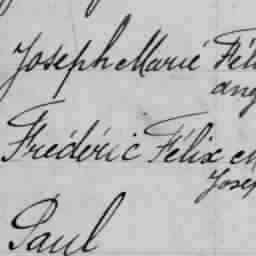 Joseph Marie Féli
ang
Frédéric Félix et
Josep
Paul